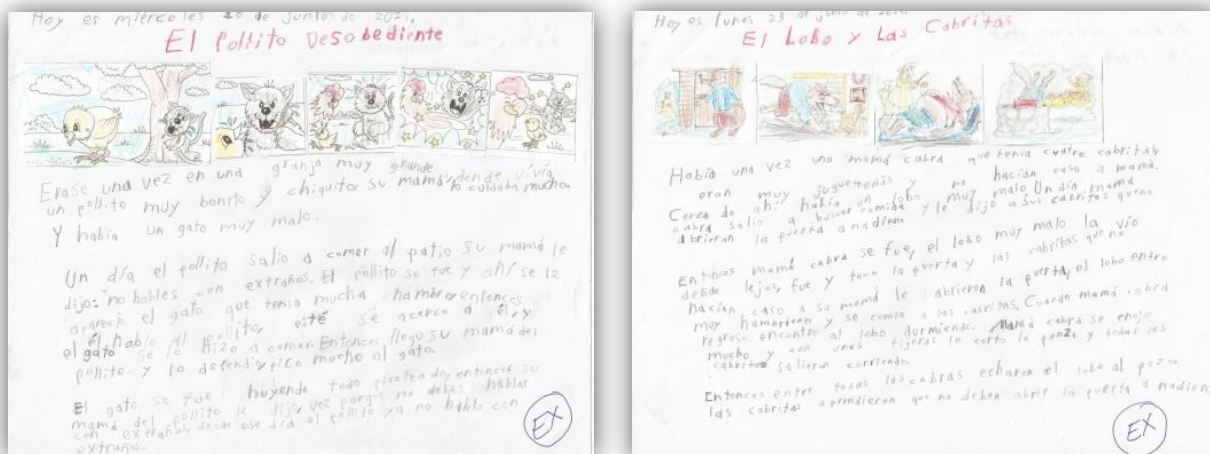 Hoy es miércoles de junio de
El Pollito Desobediente
Erase una vez en una granja muy grande donde vivía
un pollito muy bonito y chiquito, su mamá lo cuidaba mucho.
Y había un gato muy malo.
Un día el pollito salio a comer al patio su mamá le
dijo: "no hables con extraños. El pollito se fue y ahí se le
aparecio el gato que tenia mucha hambre, entonces
él hablo al pollito, esté se acerco a él, y
el gato se lo hizo a comer. Entonces llego su mamá del
pollito y lo defendio pico mucho al gato.
El gato se fue huyendo todo picoteado, entonces su
mamá del pollito le dijo vez porque no debes hablar
con extraños, desde ese día el pollito ya no hablo con
extraños.
EX
Hoy es lunes 23 de junio de
El Lobo y Las Cabritas
Había una vez una mamá cabra que tenia cuatro cabritas
eran muy juguetonas y no hacían caso a mamá.
Cerca de ahí había un lobo muy malo. Un día mamá
cabra salio a buscar comida y le dijo a sus cabritas que no
abrieran la puerta a nadien.
Entonces mamá cabra se fue, el lobo muy malo la vío
desde lejos, fue y toco la puerta y las cabritas que no
hacían caso a su mamá le abrieron la puerta, el lobo entro
muy hambriento y se comio a las cabritas. Cuando mamá cabra
regreso encontro al lobo durmiendo. Mamá cabra se enojo
mucho y con unas tijeras le corto la panza y todas las
cabritas salieron corriendo.
Entonces entre todas las cabras echaron el lobo al pozo
las cabritas aprendieron que no deben abrir la puerta a nadien
EX